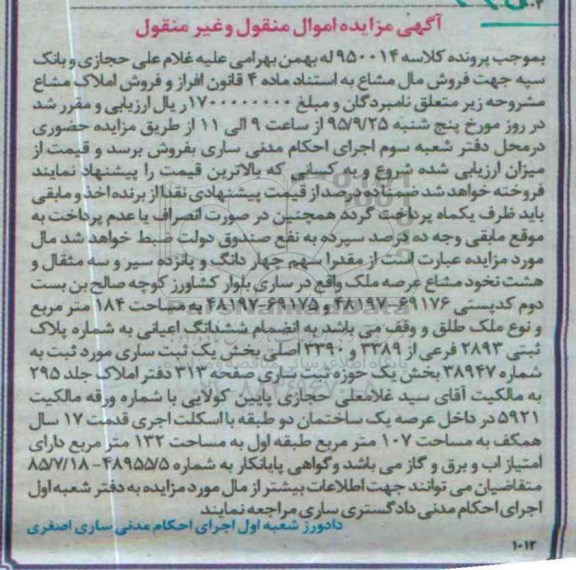 آگهی مزایده اموال منقول وغیر منقول
بموجب پرونده کلاسه ۹۵۰۰۱۴ له بهمن بهرامی علیه غلام علی حجازی و بانک
سپه جهت فروش مال مشاع به استناد ماده ۴ قانون افراز و فروش املاک مشاع
مشروحه زیر متعلق نامبردگان و مبلغ ۱۷۰۰۰۰۰۰۰۰ ریال ارزیابی و مقرر شد
در روز مورخ پنج شنبه ۹۵/۹/۲۵ از ساعت ۹ الی ۱۱ از طریق مزایده حضوری
درمحل دفتر شعبه سوم اجرای احکام مدنی ساری بفروش برسد و قیمت از
میزان ارزیابی شده شروع و به کسانی که بالاترین قیمت را پیشنهاد نمایند
فروخته خواهد شد ضمنا ده درصد از قیمت پیشنهادی نقدا از برنده اخذ و مابقی
باید ظرف یکماه پرداخت گردد همچنین در صورت انصراف یا عدم پرداخت به
موقع مابقی وجه ده درصد سپرده به نفع صندوق دولت ضبط خواهد شد مال
مورد مزایده عبارت است از مقدرا سهم چهار دانگ و پانزده سیر و سه مثقال و
هشت نخود مشاع عرصه ملک واقع در ساری بلوار کشاورز کوچه صالح بن بست
دوم کدپستی ۶۹۱۷۶-۴۸۱۹۷ و ۶۹۱۷۵-۴۸۱۹۷ به مساحت ۱۸۴ متر مربع
و نوع ملک طلق و وقف می باشد به انضمام ششدانگ اعیانی به شماره پلاک
ثبتی ۲۸۹۳ فرعی از ۳۳۸۹ و ۳۳۹۰ اصلی بخش یک ثبت ساری مورد ثبت به
شماره ۳۸۹۴۷ بخش یک حوزه ثبت ساری صفحه ۳۱۳ دفتر املاک جلد ۲۹۵
به مالکیت آقای سید غلامعلی حجازی پایین کولایی با شماره ورقه مالکیت
۵۹۲۱ در داخل عرصه یک ساختمان دو طبقه با اسکلت اجری قدمت ۱۷ سال
همکف به مساحت ۱۰۷ متر مربع طبقه اول به مساحت ۱۳۲ متر مربع دارای
امتیاز اب و برق و گاز می باشد و گواهی پایانکار به شماره ۴۸۹۵۵/۵-۸۵/۷/۱۸
متقاضیان می توانند جهت اطلاعات بیشتر از مال مورد مزایده به دفتر شعبه اول
اجرای احکام مدنی دادگستری ساری مراجعه نمایند
دادورز شعبه اول اجرای احکام مدنی ساری اصغری
۱۰۱۲